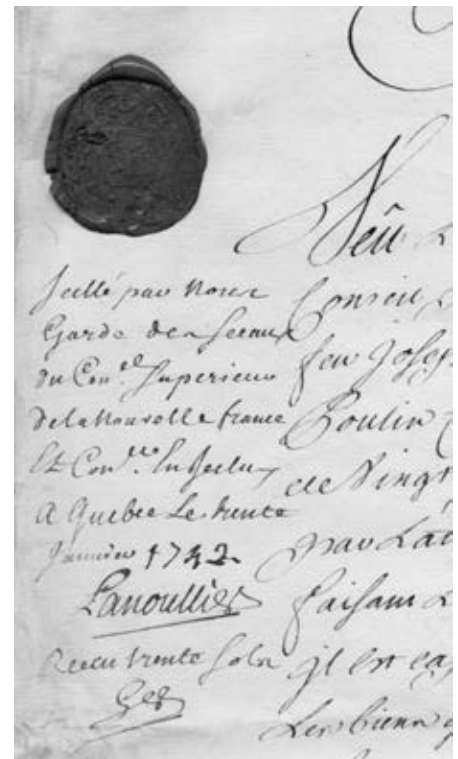 Scellé par Nous
Garde des Sceaux
du Con.el Superieur
de la Nouvelle france
Et Con.er en Iceluy
A Quebec Le trente
Janvier 1742
Lanoullier
Receu trente Sols
Veû L
Conseil
feu Joseph
Poulin
de Vingt
par Lad
faisant
jl est
Les biens